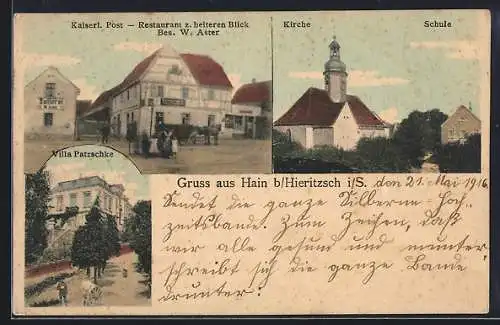 Kaiserl. Post — Restaurant z. heiteren Blick
Bes. W. Aster
Kirche
Schule
Villa Patzschke
Gruss aus Hain b/Hieritzsch i/S. den 21. Mai 1916.
Sendet die ganze Silbern- Hoch-
zeitsbande. Zum Zeichen, daß
wir alle gesund und munter
schreibt sich die ganze Bande
drunter: